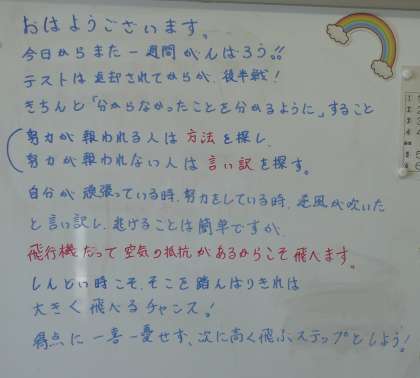 おはようございます。
今日からまた一週間がんばろう!!
テストは返却されてからが、後半戦!
きちんと「分からなかったことを分かるように」すること
努力が報われる人は方法を探し、
努力が報われない人は言い訳を探す。
自分が頑張っている時、努力をしている時、逆風が吹いた
と言い訳し、逃げることは簡単ですが、
飛行機だって空気の抵抗があるからこそ飛べます。
しんどい時こそ、そこを踏んばりきれば
大きく飛べるチャンス!
得点に一喜一憂せず、次に高く飛ぶステップとしよう!